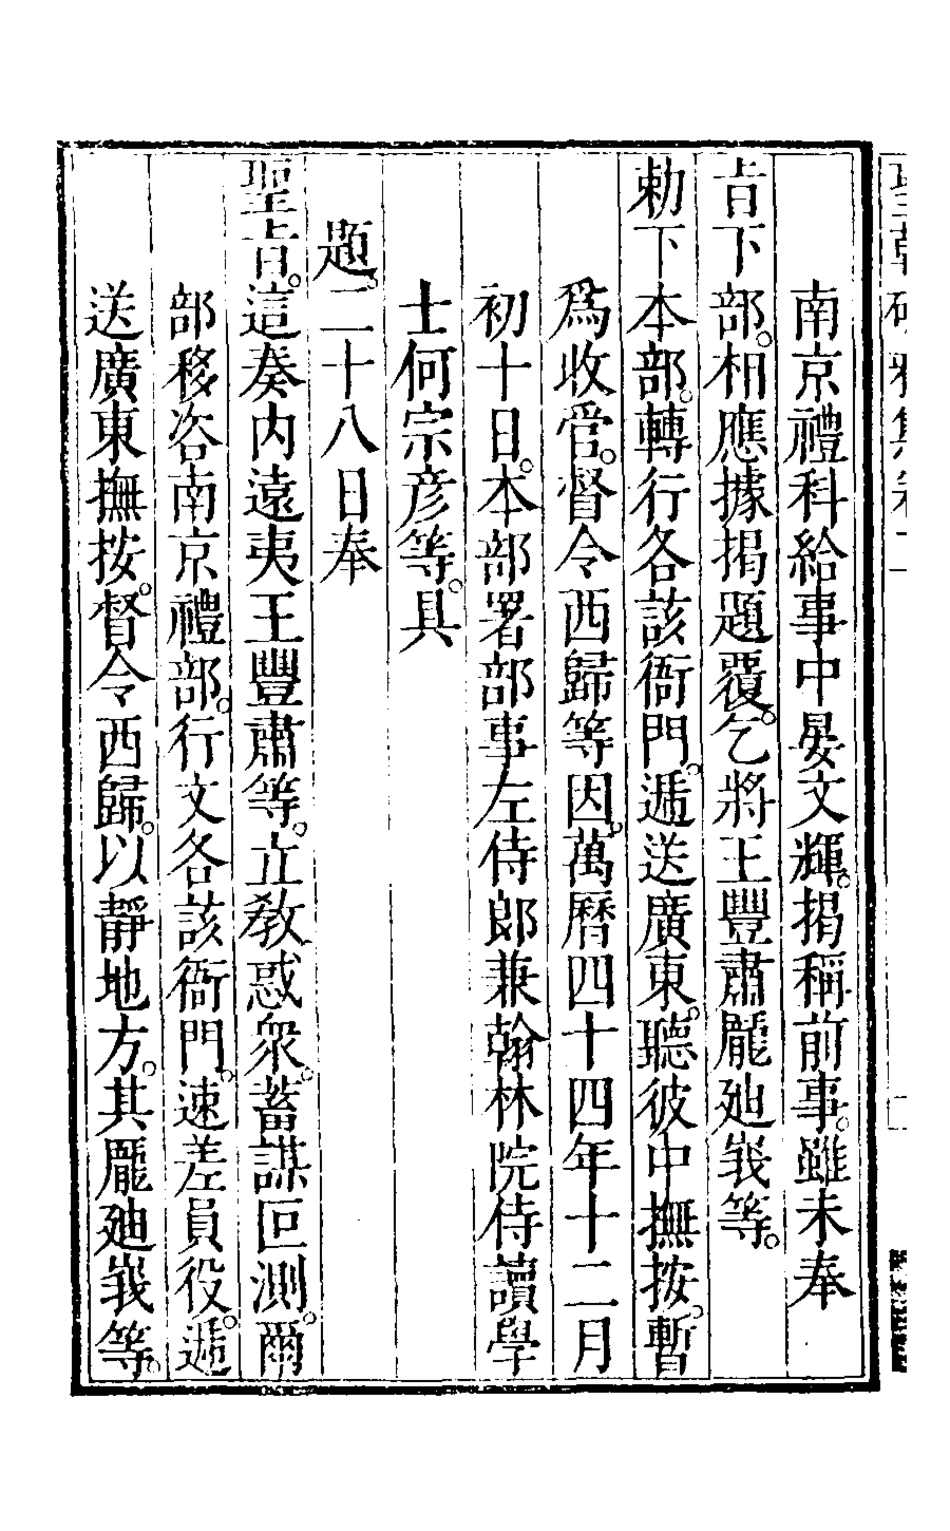 聖朝破邪集卷
南京禮科給事中晏文輝。揭稱前事。雖未奉
旨下部。相應據揭題覆。乞將王豐肅龐廸峩等。
勅下本部。轉行各該衙門。遞送廣東。聽彼中撫按。暫
爲收管。督令西歸等因。萬曆四十四年十二月
初十日。本部署部事左侍郎兼翰林院侍讀學
士何宗彥等。具
題。二十八日奉
聖旨。這奏內遠夷王豐肅等。立教惑衆。蓄謀叵測。爾
部移咨南京禮部。行文各該衙門。速差員役。遞
送廣東撫按。督令西歸。以靜地方。其龐廸峩等。